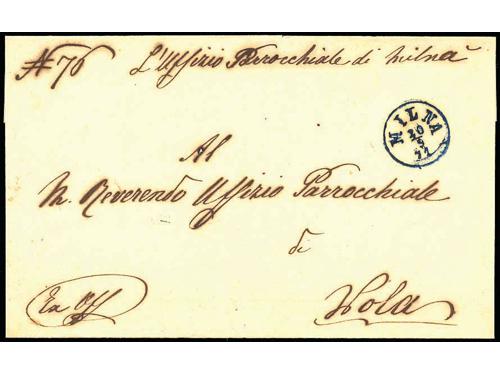 N 76 L'Uffizio Parrocchiale di Milnà
MILNA
20
5
77
Al
M. Reverendo Uffizio Parrocchiale
di
Ex Off Hola